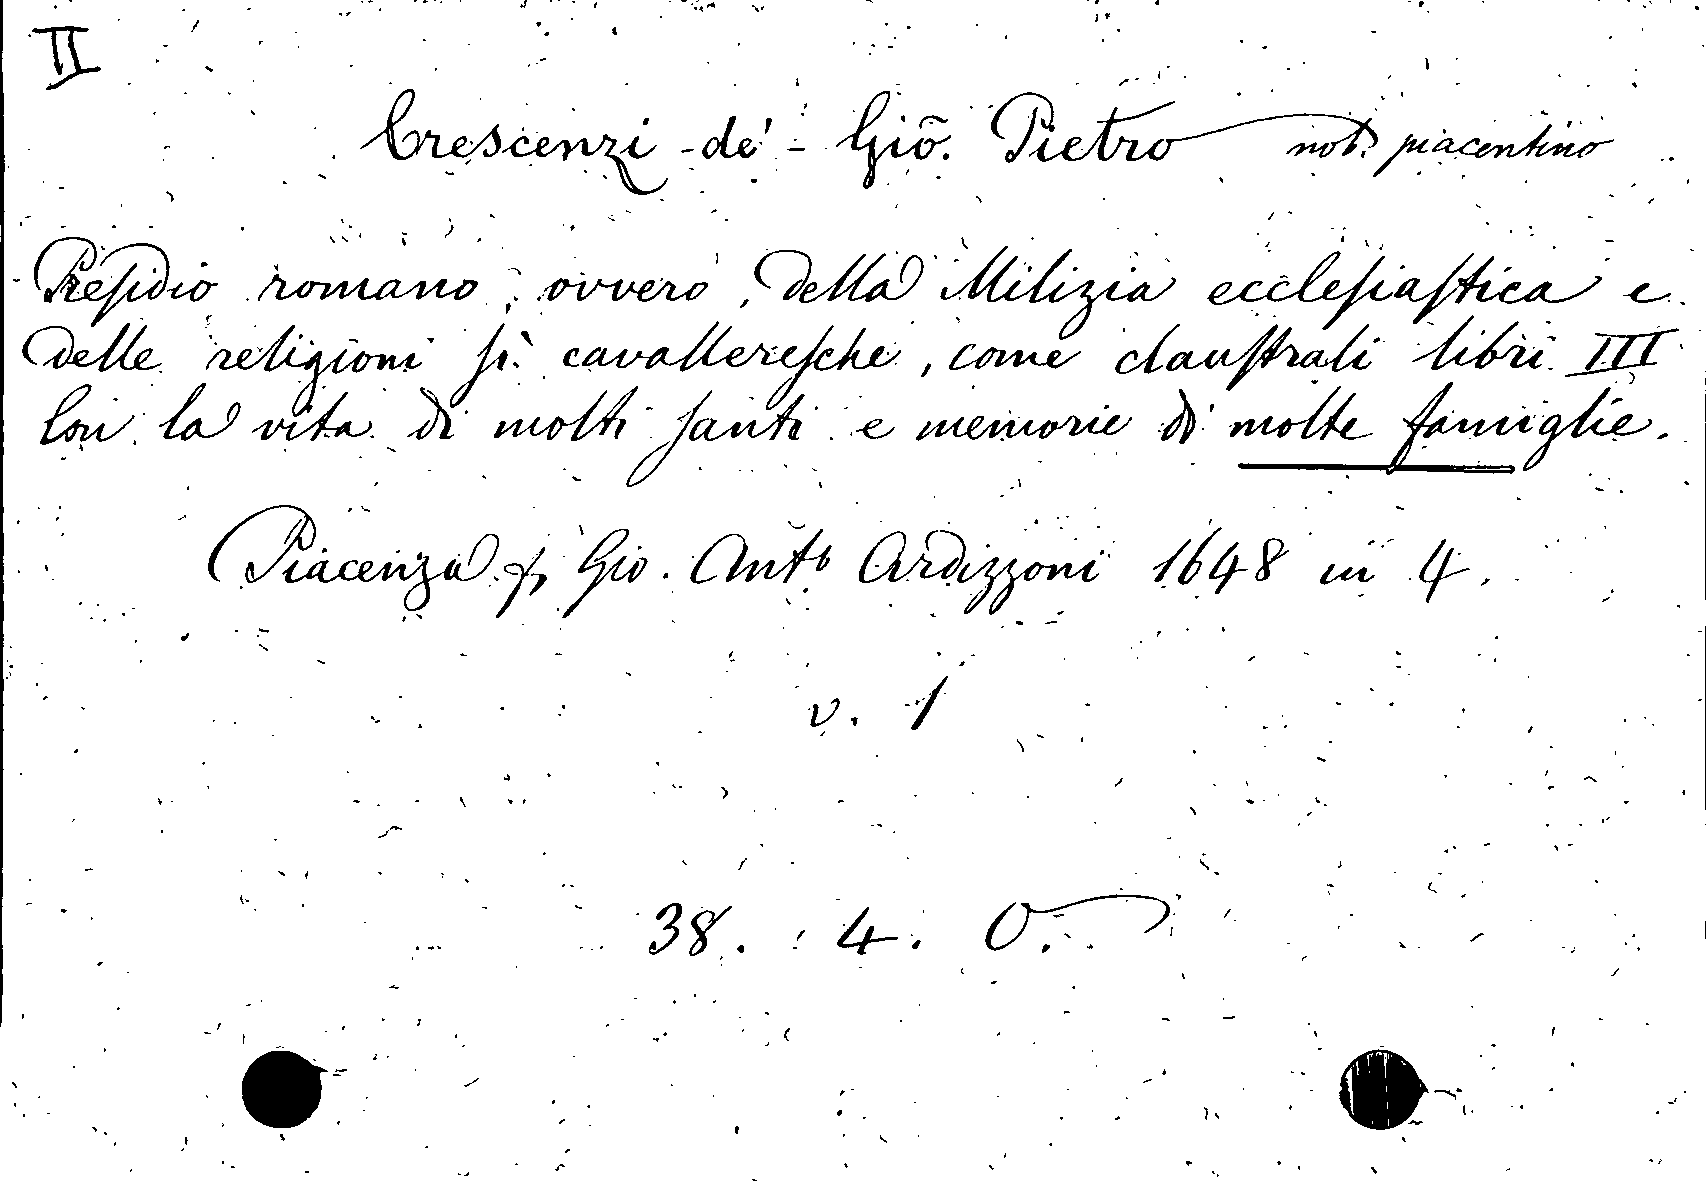 II
Crescenzi - de' - Giõ. Pietro nob. piacentino
Presidio romano, ovvero, della Milizia ecclesiastica e
delle religioni sì cavalleresche, come claustrali libri III
Con la vita di molti santi e memorie di molte famiglie.
Piacenza p. Gio. Antº Ardizzoni 1648 in 4.
v. 1
38. 4. O.